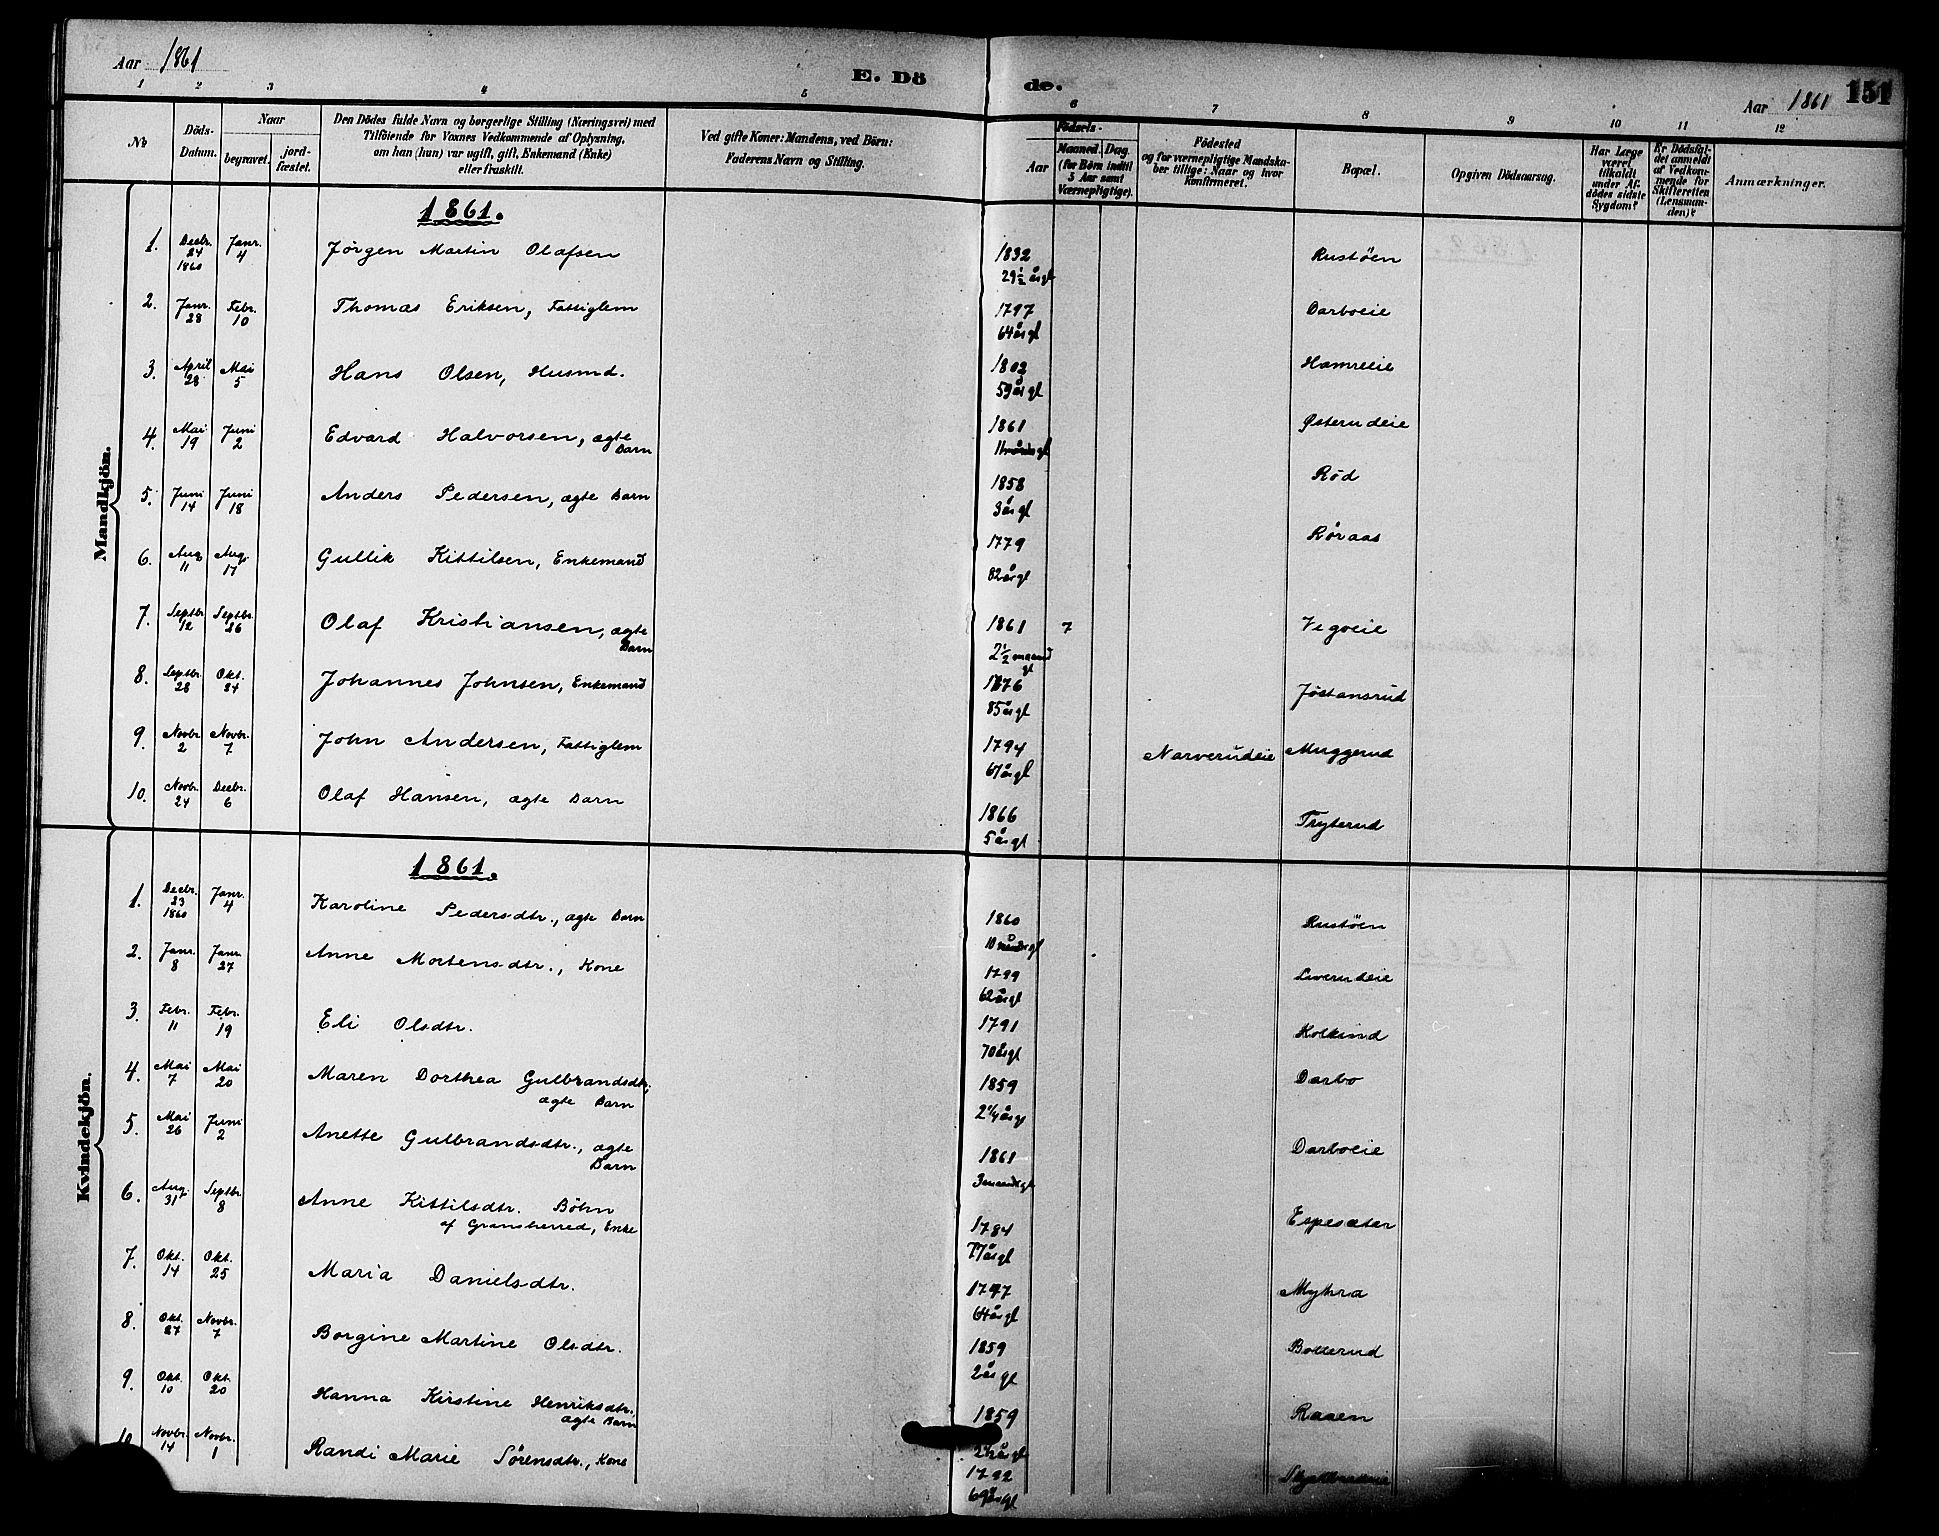 Aar 1861
E. Dö
de.
Aar 1861 151
1 2 3 4 5 6 7 8 9 10 11 12
No
Döds-
Datum.
Naar
begravet.
jord-
fæstet.
Den Dödes fulde Navn og borgerlige Stilling (Næringsvei) med
Tilföiende for Voxnes Vedkommende af Oplysning,
om han (hun) var ugift, gift, Enkemand (Enke)
eller fraskilt.
Ved gifte Koner: Mandens, ved Börn:
Faderens Navn og Stilling.
Födsels-
Aar
Maaned. Dag.
(for Börn indtil
5 Aar samt
Værnepligtige).
Födested
og for værnepligtige Mandska-
ber tillige: Naar og hvor
Konfirmeret.
Bopæl.
Opgiven Dödsaarsag.
Har Læge
været
tilkaldt
under Af-
dödes sidste
Sygdom?
Er Dödsfal-
det anmeldt
af Vedkom-
mende for
Skifteretten
(Lensman-
den)?
Anmærkninger.
Mandkjön.
1861.
1. Decbr. 24 1860 Janr. 4 Jørgen Martin Olafsen 1832 29½ årgl Rustöen
2. Janr. 28 Febr. 10 Thomas Eriksen, Fattiglem 1797 64 årgl Darboeie
3. April 28 Mai 5 Hans Olsen, Husmd. 1802 59 årgl Hamreeie
4. Mai 19 Juni 2 Edvard Halvorsen, ægte Barn 1861 Østerudeie
5. Juni 14 Juni 18 Anders Pedersen, ægte Barn 1858 3 årgl Rød
6. Aug. 11 Aug. 17 Gullik Kittilsen, Enkemand 1779 82 årgl Røraas
7. Septbr. 12 Septbr. 26 Olaf Kristiansen, ægte Barn 1861 7 2½ maand gl Vegoeie
8. Septbr. 28 Okt. Johannes Johnsen, Enkemand 85 årgl Jøstansrud
9. Novbr. 2 Novbr. 7 John Andersen, Fattiglem 1794 67 årgl Narverudeie Muggerud
10. Novbr. 24 Decbr. 6 Olaf Hansen, ægte Barn 1866 5 årgl Tryterud
Kvindekjön.
1861.
1. Decbr. 23 1860 Janr. 4 Karoline Pedersdtr., ægte Barn 1860 Rustöen
2. Janr. 8 Janr. 27 Anne Mortensdtr., Kone 1799 62 årgl Liverudeie
3. Febr. 11 Febr. 19 Eli Olsdtr. 1791 70 årgl
4. Mai 7 Mai 20 Maren Dorthea Gulbrandsdtr, ægte Barn 1859 2¼ årgl Darbo
5. Mai 26 Juni 2 Anette Gulbrandsdtr., ægte Barn 1861 3 maandsgl Darboeie
6. Aug. 31 Septbr. 8 Anne Kittilsdtr. Böhn af Gransherred, Enke 1784 77 årgl Espesæter
7. Okt. 14 Okt. 25 Maria Danielsdtr. 64 årgl Myhra
8. Okt. 27 Novbr. 7 Borgine Martine Olsdtr. 1859 2 årgl Bollerud
9. Okt. 10 Okt. 20 Hanna Kirstine Henriksdtr. ægte Barn 1859 Raaen
10. Novbr. 14 Novbr. 1 Randi Marie Sörensdtr., Kone 1792 69 årgl